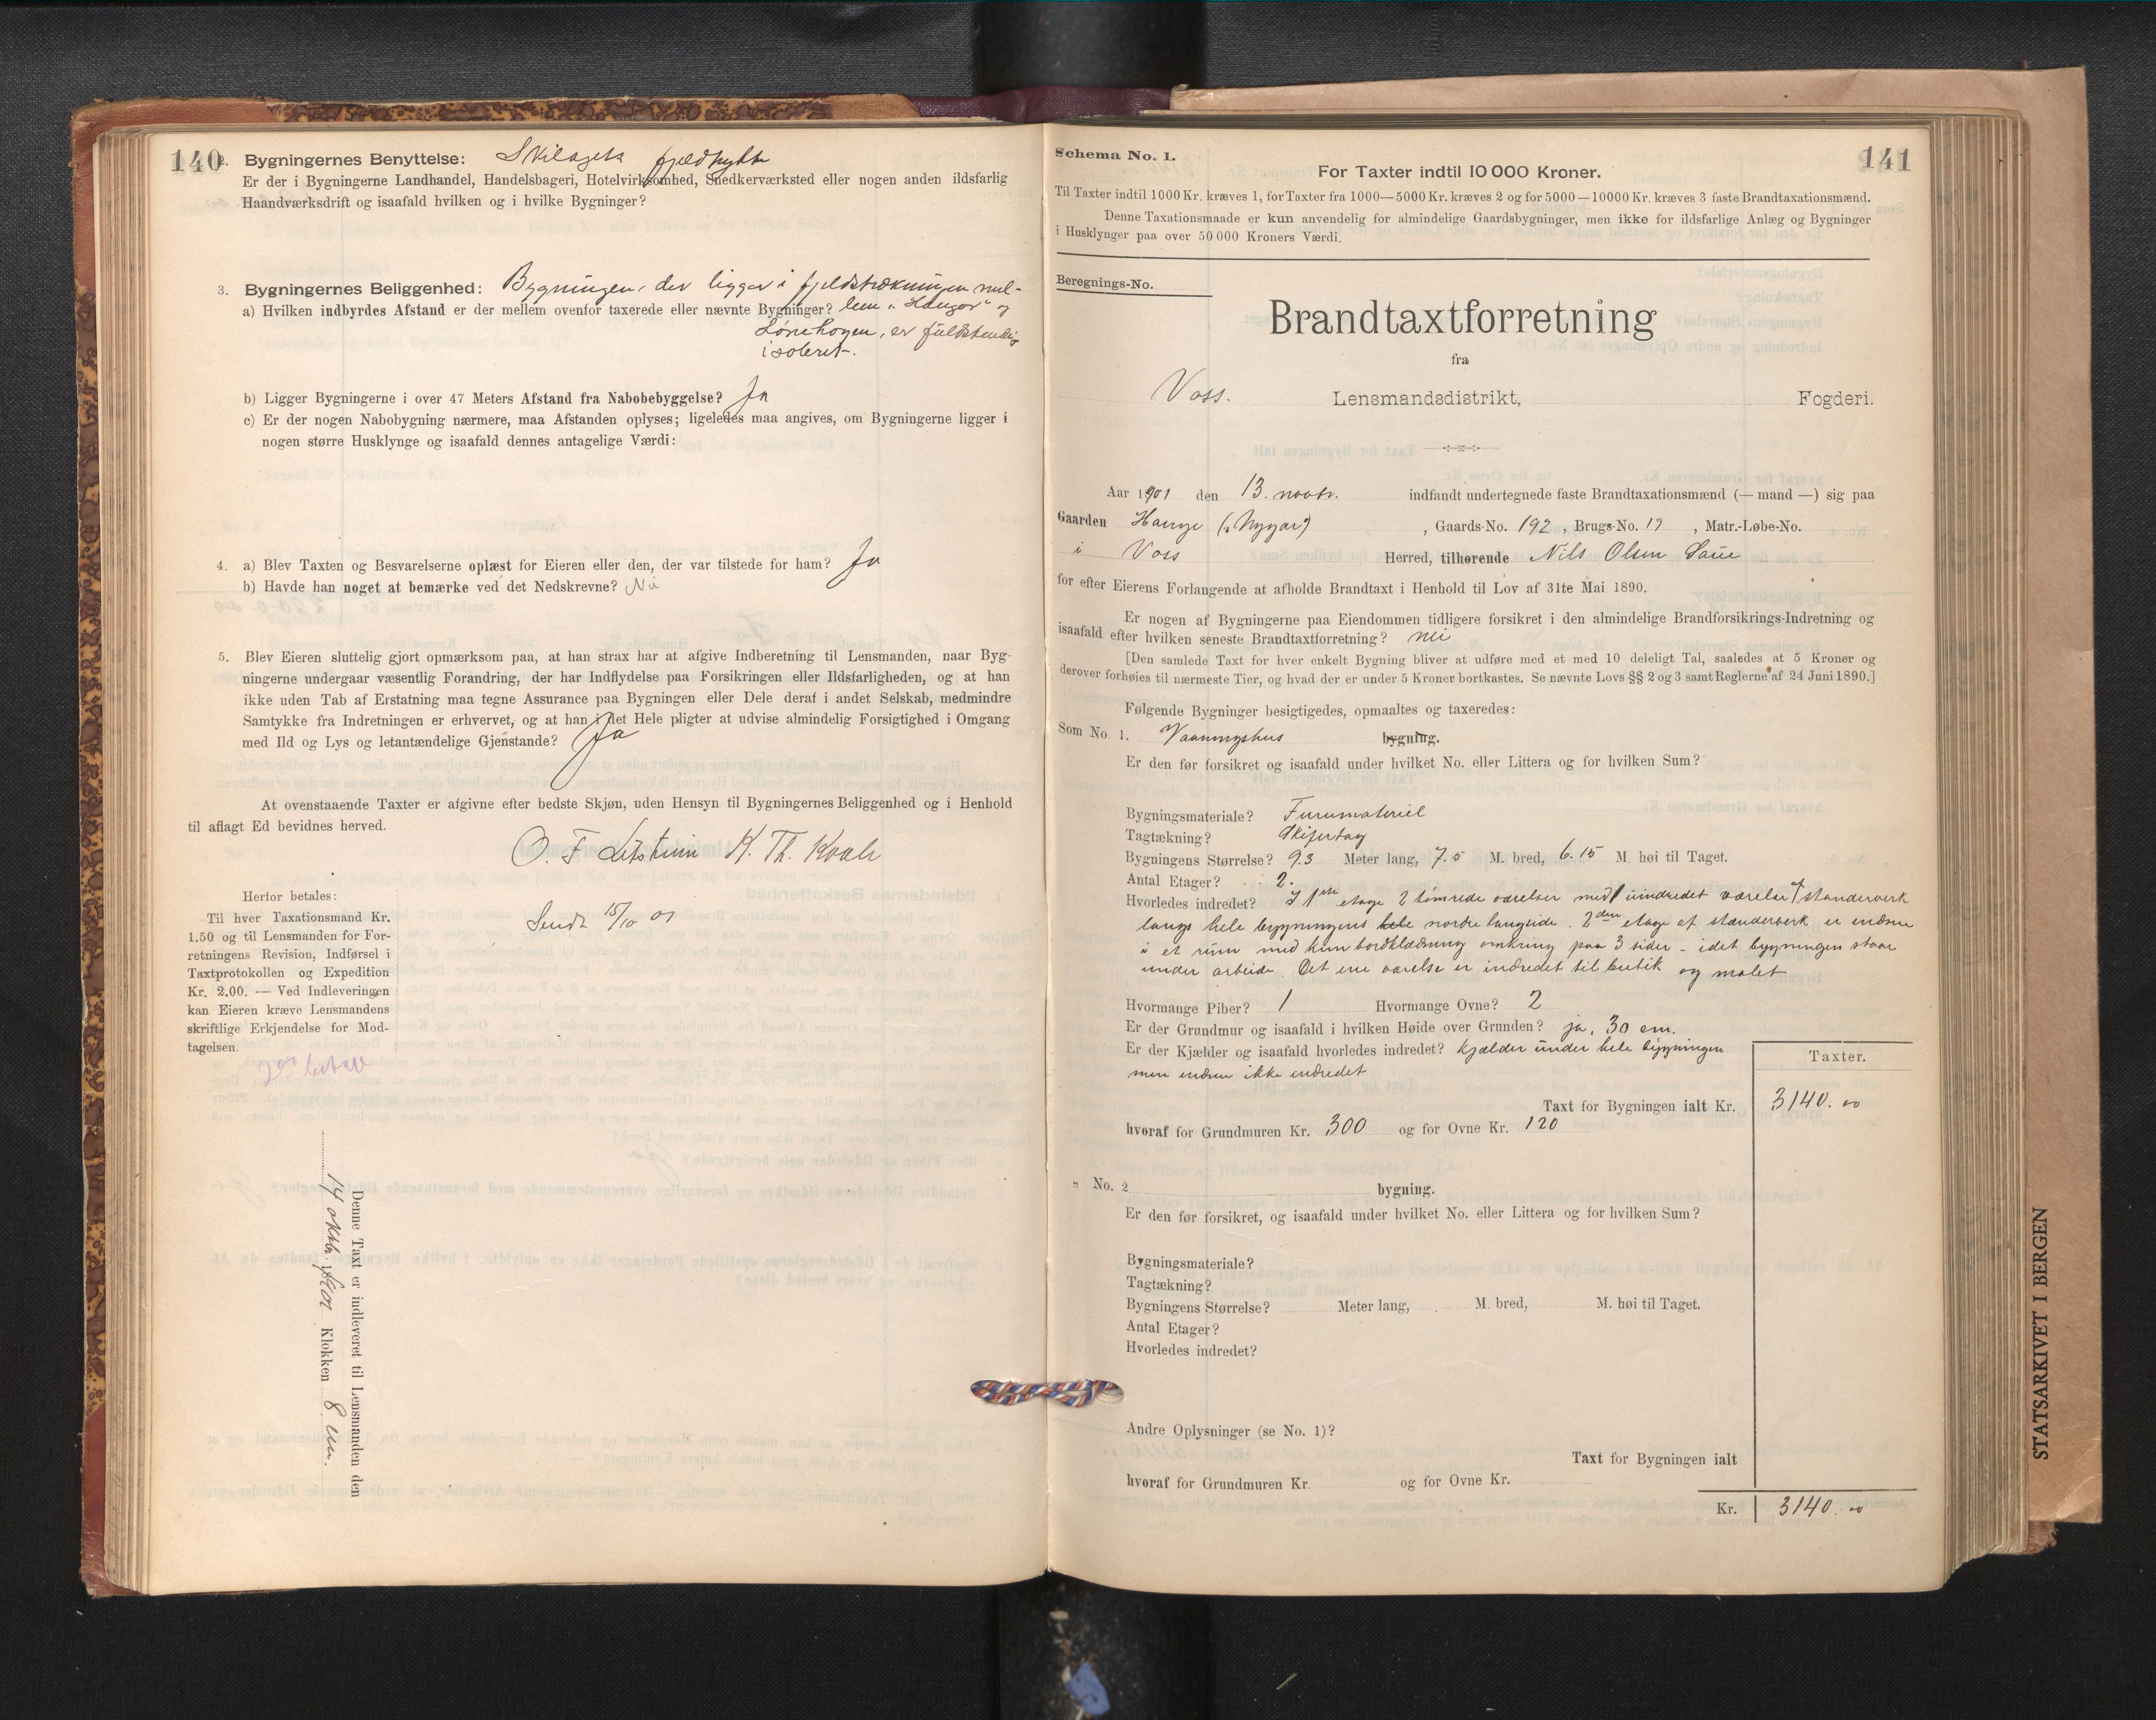 140
2. Bygningernes Benyttelse: Skilagets fjeldhytte
Er der i Bygningerne Landhandel, Handelsbageri, Hotelvirksomhed, Snedkerværksted eller nogen anden ildsfarlig
Haandværksdrift og isaafald hvilken og i hvilke Bygninger?
3. Bygningernes Beliggenhed: Bygningen, der ligger i fjeldstrækningen mel-
a) Hvilken indbyrdes Afstand er der mellem ovenfor taxerede eller nævnte Bygninger? lem „Hangor" og
Lønehogen, er fuldstendig
isoleret.
b) Ligger Bygningerne i over 47 Meters Afstand fra Nabobebyggelse? Ja
c) Er der nogen Nabobygning nærmere, maa Afstanden oplyses; ligeledes maa angives, om Bygningerne ligger i
nogen større Husklynge og isaafald dennes antagelige Værdi:
4. a) Blev Taxten og Besvarelserne oplæst for Eieren eller den, der var tilstede for ham? Ja
b) Havde han noget at bemærke ved det Nedskrevne? Nei
5. Blev Eieren sluttelig gjort opmærksom paa, at han strax har at afgive Indberetning til Lensmanden, naar Byg-
ningerne undergaar væsentlig Forandring, der har Indflydelse paa Forsikringen eller Ildsfarligheden, og at han
ikke uden Tab af Erstatning maa tegne Assurance paa Bygningen eller Dele deraf i andet Selskab, medmindre
Samtykke fra Indretningen er erhvervet, og at han i det Hele pligter at udvise almindelig Forsigtighed i Omgang
med Ild og Lys og letantændelige Gjenstande? Ja
At ovenstaaende Taxter er afgivne efter bedste Skjøn, uden Hensyn til Bygningernes Beliggenhed og i Henhold
til aflagt Ed bevidnes herved.
O. F. K. Th.
Sendt 15/10 01
Herfor betales:
Til hver Taxationsmand Kr.
1.50 og til Lensmanden for For-
retningens Revision, Indførsel i
Taxtprotokollen og Expedition
Kr. 2.00. — Ved Indleveringen
kan Eieren kræve Lensmandens
skriftlige Erkjendelse for Mod-
tagelsen.
betalt
Denne Taxt er indleveret til Lensmanden den
14 oktbr. 1901 Klokken 8 em.
Schema No. 1.
141
For Taxter indtil 10 000 Kroner.
Til Taxter indtil 1000 Kr. kræves 1, for Taxter fra 1000—5000 Kr. kræves 2 og for 5000—10000 Kr. kræves 3 faste Brandtaxationsmænd.
Denne Taxationsmaade er kun anvendelig for almindelige Gaardsbygninger, men ikke for ildsfarlige Anlæg og Bygninger
i Husklynger paa over 50 000 Kroners Værdi.
Beregnings-No.
Brandtaxtforretning
fra
Voss. Lensmandsdistrikt, Fogderi.
Aar 1901 den 13. novbr. indfandt undertegnede faste Brandtaxationsmænd (— mand —) sig paa
Gaarden , Gaards-No. 192, Brugs-No. 19, Matr.-Løbe-No.
i Voss Herred, tilhørende Nils Olsen Saue
for efter Eierens Forlangende at afholde Brandtaxt i Henhold til Lov af 31te Mai 1890.
Er nogen af Bygningerne paa Eiendommen tidligere forsikret i den almindelige Brandforsikrings-Indretning og
isaafald efter hvilken seneste Brandtaxtforretning? nei
[Den samlede Taxt for hver enkelt Bygning bliver at udføre med et med 10 deleligt Tal, saaledes at 5 Kroner og
derover forhøies til nærmeste Tier, og hvad der er under 5 Kroner bortkastes. Se nævnte Lovs §§ 2 og 3 samt Reglerne af 24 Juni 1890.]
Følgende Bygninger besigtigedes, opmaaltes og taxeredes:
Som No. 1. Vaaningshus bygning.
Er den før forsikret og isaafald under hvilket No. eller Littera og for hvilken Sum?
Bygningsmateriale? Furumateriel
Tagtækning? Skifertag
Bygningens Størrelse? 9.3 Meter lang, 7.5 M. bred, 6.15 M. høi til Taget.
Antal Etager? 2.
Hvorledes indredet? I 1ste etage 2 tømrede værelser med 1 uindredet værelse af standerverk
langs hele bygningens hele nordre langside. 2den etage af stænderverk er endnu
i et rum med kun bordklædning omkring paa 3 sider - idet bygningen staar
under arbeide. Det ene værelse er indredet til butik og malet
Hvormange Piber? 1 Hvormange Ovne? 2
Er der Grundmur og isaafald i hvilken Høide over Grunden? ja, 30 cm.
Er der Kjælder og isaafald hvorledes indredet? kjælder under hele bygningen
men endnu ikke indredet
Taxter.
Taxt for Bygningen ialt Kr. 3140.00
hvoraf for Grundmuren Kr. 300 og for Ovne Kr. 120
„ No. 2 bygning.
Er den før forsikret, og isaafald under hvilket No. eller Littera og for hvilken Sum?
Bygningsmateriale?
Tagtækning?
Bygningens Størrelse? Meter lang, M. bred, M. høi til Taget.
Antal Etager?
Hvorledes indredet?
Andre Oplysninger (se No. 1)?
Taxt for Bygningen ialt
hvoraf for Grundmuren Kr. og for Ovne Kr.
Kr. 3140.00
STATSARKIVET I BERGEN